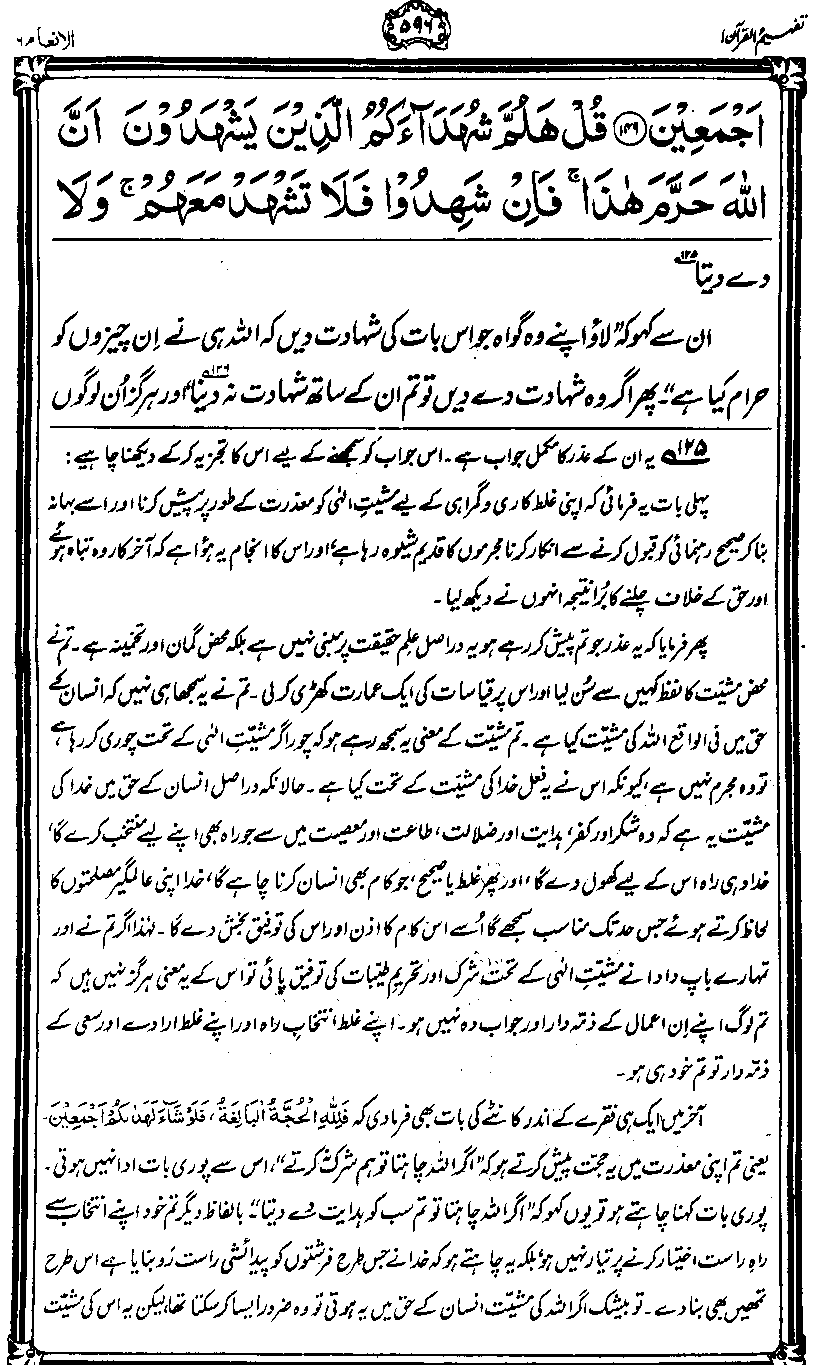 تفہیم القرآن ۱
۵۹۶
الانعام ۶
اَجْمَعِیْنَ ﴿۱۴۹﴾ قُلْ هَلُمَّ شُهَدَآءَکُمُ الَّذِیْنَ یَشْهَدُوْنَ اَنَّ
اللّٰهَ حَرَّمَ هٰذَا ۚ فَاِنْ شَهِدُوْا فَلَا تَشْهَدْ مَعَهُمْ ۚ وَلَا
دے دیتا ۱۲۵
ان سے کہو کہ ”لاؤ اپنے وہ گواہ جو اس بات کی شہادت دیں کہ اللہ ہی نے اِن چیزوں کو
حرام کیا ہے“۔ پھر اگر وہ شہادت دے دیں تو تم ان کے ساتھ شہادت نہ دینا ۱۲۶، اور ہرگز اُن لوگوں
۱۲۵ یہ ان کے عذر کا مکمل جواب ہے۔ اس جواب کو سمجھنے کے لیے اس کا تجزیہ کر کے دیکھنا چاہیے:
پہلی بات یہ فرمائی کہ اپنی غلط کاری و گمراہی کے لیے مشیتِ الٰہی کو معذرت کے طور پر پیش کرنا اور اسے بہانہ
بنا کر صحیح رہنمائی کو قبول کرنے سے انکار کرنا مجرموں کا قدیم شیوہ رہا ہے، اور اس کا انجام یہ ہؤا ہے کہ آخر کار وہ تباہ ہوئے
اور حق کے خلاف چلنے کا بُرا نتیجہ انہوں نے دیکھ لیا۔
پھر فرمایا کہ یہ عذر جو تم پیش کر رہے ہو یہ دراصل علمِ حقیقت پر مبنی نہیں ہے بلکہ محض گمان اور تخمینہ ہے۔ تم نے
محض مشیّت کا لفظ کہیں سے سُن لیا اور اس پر قیاسات کی ایک عمارت کھڑی کر لی۔ تم نے یہ سمجھا ہی نہیں کہ انسان کے
حق میں فی الواقع اللہ کی مشیّت کیا ہے۔ تم مشیّت کے معنی یہ سمجھ رہے ہو کہ چور اگر مشیّتِ الٰہی کے تحت چوری کر رہا ہے
تو وہ مجرم نہیں ہے، کیونکہ اس نے یہ فعل خدا کی مشیّت کے تحت کیا ہے۔ حالانکہ دراصل انسان کے حق میں خدا کی
مشیّت یہ ہے کہ وہ شکر اور کفر، ہدایت اور ضلالت، طاعت اور معصیت میں سے جو راہ بھی اپنے لیے منتخب کرے گا،
خدا وہی راہ اس کے لیے کھول دے گا، اور پھر غلط یا صحیح، جو کام بھی انسان کرنا چاہے گا، خدا اپنی عالمگیر مصلحتوں کا
لحاظ کرتے ہوئے جس حد تک مناسب سمجھے گا اُسے اس کام کا اذن اور اس کی توفیق بخش دے گا۔ لہٰذا اگر تم نے اور
تمہارے باپ دادا نے مشیّتِ الٰہی کے تحت شرک اور تحریمِ طیّبات کی توفیق پائی تو اس کے یہ معنی ہرگز نہیں ہیں کہ
تم لوگ اپنے اِن اعمال کے ذمّہ دار اور جواب دہ نہیں ہو۔ اپنے غلط انتخابِ راہ اور اپنے غلط ارادے اور سعی کے
ذمّہ دار تو تم خود ہی ہو۔
آخر میں ایک ہی فقرے کے اندر کانٹے کی بات بھی فرما دی کہ فَلِلّٰهِ الْحُجَّةُ الْبَالِغَةُ، فَلَوْ شَآءَ لَهَدٰىکُمْ اَجْمَعِیْنَ۔
یعنی تم اپنی معذرت میں یہ حجت پیش کرتے ہو کہ ”اگر اللہ چاہتا تو ہم شرک نہ کرتے“، اس سے پوری بات ادا نہیں ہوتی۔
پوری بات کہنا چاہتے ہو تو یوں کہو کہ ”اگر اللہ چاہتا تو تم سب کو ہدایت دے دیتا“۔ بالفاظ دیگر تم خود اپنے انتخاب سے
راہِ راست اختیار کرنے پر تیار نہیں ہو، بلکہ یہ چاہتے ہو کہ خدا نے جس طرح فرشتوں کو پیدائشی راست رَو بنایا ہے اس طرح
تمھیں بھی بنا دے۔ تو بیشک اگر اللہ کی مشیّت انسان کے حق میں یہ ہوتی تو وہ ضرور ایسا کر سکتا تھا، لیکن یہ اس کی مشیّت